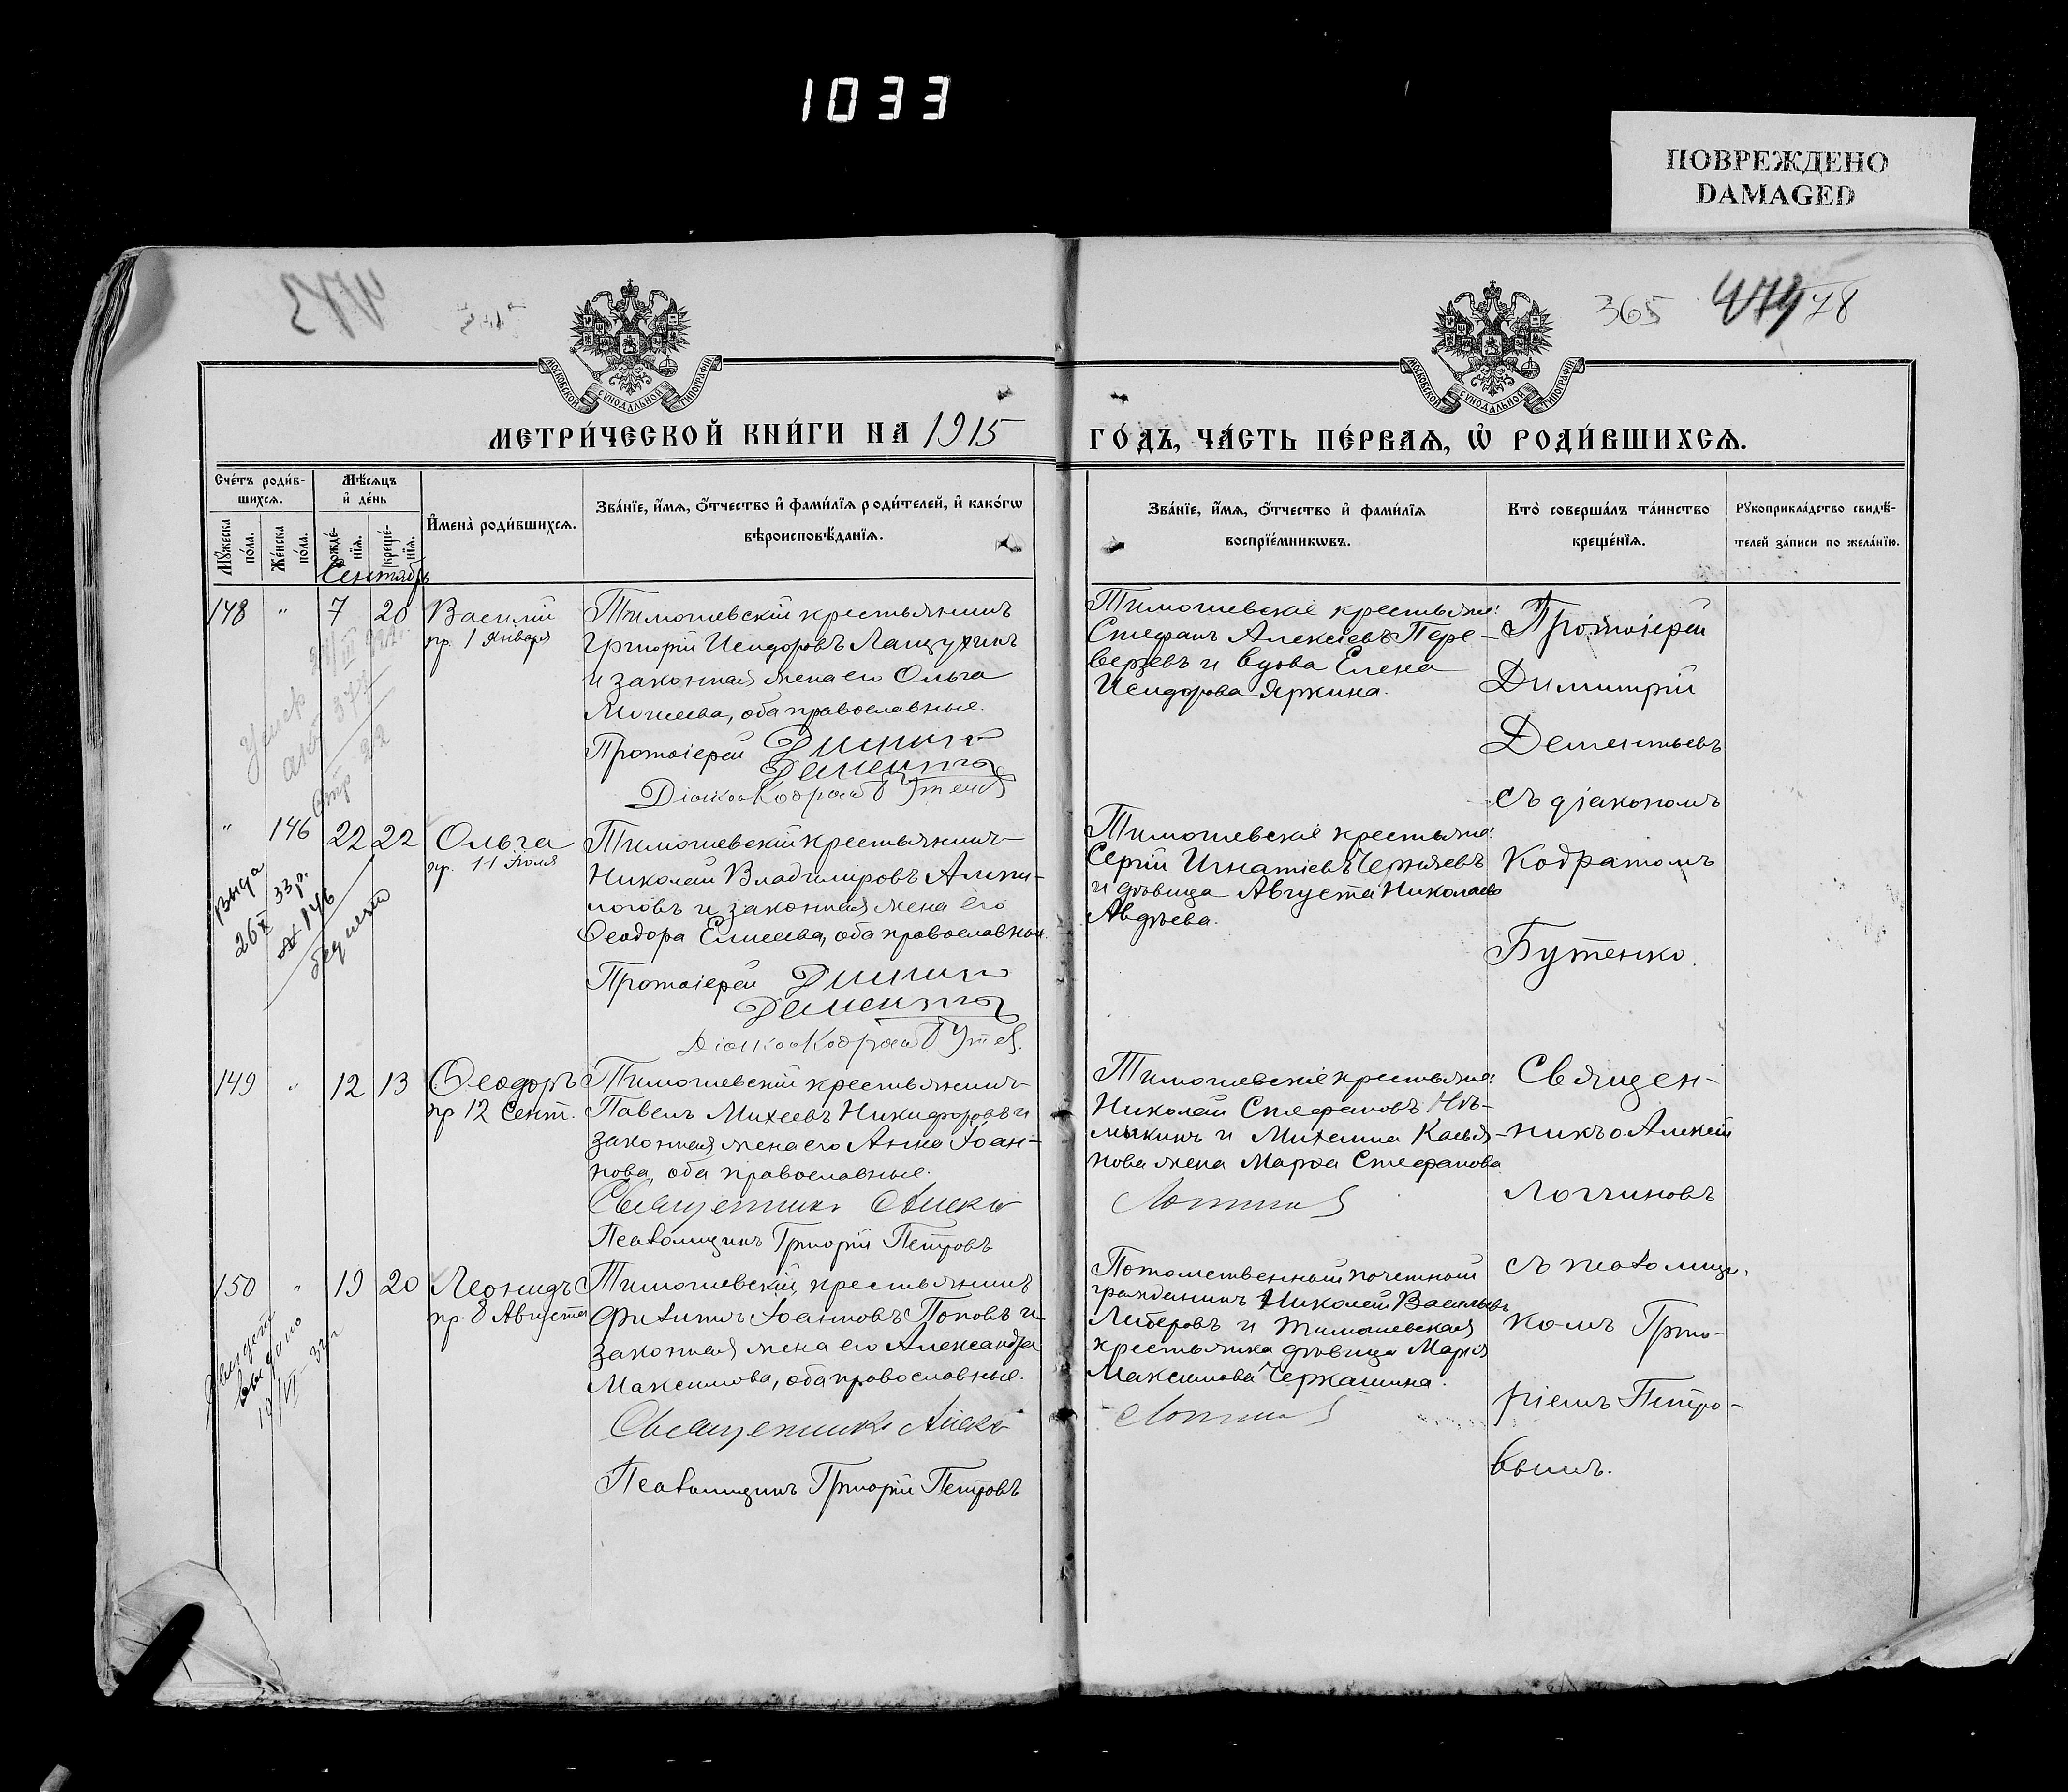 1033
ПОВРЕЖДЕНО
DAMAGED
365
78
МОСКОВСКОЙ СѴНОДАЛЬНОЙ ТИПОГРАФІИ
МОСКОВСКОЙ СѴНОДАЛЬНОЙ ТИПОГРАФІИ
МЕТРИ́ЧЕСКОЙ КНИ́ГИ НА 1915
ГО́ДЪ, ЧА́СТЬ ПЕ́РВАѦ, Ѡ҆ РОДИ́ВШИХСѦ.
Сче́тъ роди́в-
шихсѧ.
Мꙋ́жеска
по́ла.
Же́нска
по́ла.
Мѣ́сѧцъ
и҆ де́нь
рожде́-
нїѧ.
креще́-
нїѧ.
И҆мена̀ роди́вшихсѧ.
Зва́нїе, и҆́мѧ, ѻ҆́тчество и҆ фами́лїѧ роди́телей, и҆ како́гѡ
вѣроисповѣ́данїѧ.
Зва́нїе, и҆́мѧ, ѻ҆́тчество и҆ фами́лїѧ
воспрїе́мникѡвъ.
Кто̀ соверша́лъ та́инство
креще́нїѧ.
Рꙋкоприкла́дство свидѣ́-
телей за́писи по жела́нїю.
Сентябрь
148 " 7 20 Василій
пр. 1 Января
Тимошевскій крестьянинъ
Григорій Исидоровъ Лащухинъ
и законная жена его Ольга
Моисеева, оба православные.
Протоіерей Димитр
Дементьев
Діакон Кодрат Бутенко
Тимошевскіе крестьяне:
Стефанъ Алексіевъ Пере-
верзевъ и вдова Елена
Исидорова Яркина.
Протоіерей
Димитрій
Дементьевъ
съ діакономъ
Кодратомъ
Бутенко.
Умер
377
стр 22
" 146 22 22 Ольга
пр. 11 Іюля
Тимошевскій крестьянинъ
Николай Владимировъ Анпи-
логовъ и законная жена его
Ѳеодора Елисеева, оба православные.
Протоіерей Димитр
Дементьев
Діакон Кодрат Бутен.
Тимошевскіе крестьяне:
Сергій Игнатіевъ Черняевъ
и дѣвица Августа Николаева
Авдѣева.
выда
26 X 33 г.
№ 146
149 " 12 13 Ѳеодоръ
пр 12 Сент.
Тимошевскій крестьянинъ
Павелъ Михеевъ Никифоровъ и
законная жена его Анна Іоан-
нова, оба православные.
Священникъ Алекс
Псаломщикъ Григорій Петровъ
Тимошевскіе крестьяне:
Николай Стефановъ Нѣ-
мыкинъ и Михаила Касья-
нова жена Марѳа Стефанова
Логгинов
Священ-
никъ о. Алексій
Логгиновъ
съ псаломщи-
комъ Григо-
ріемъ Петро-
вымъ.
150 " 19 20 Леонидъ
пр. 8 Августа
Тимошевскій крестьянинъ
Филиппъ Іоанновъ Поповъ и
законная жена его Александра
Максимова, оба православные.
Священникъ Алекс
Псаломщикъ Григорій Петровъ
Потомственный почетный
гражданинъ Николай Васильевъ
Либеровъ и Тимошевская
крестьянка дѣвица Марія
Максимова Черкашина.
Логгинов
выдано
19/VI 32 г